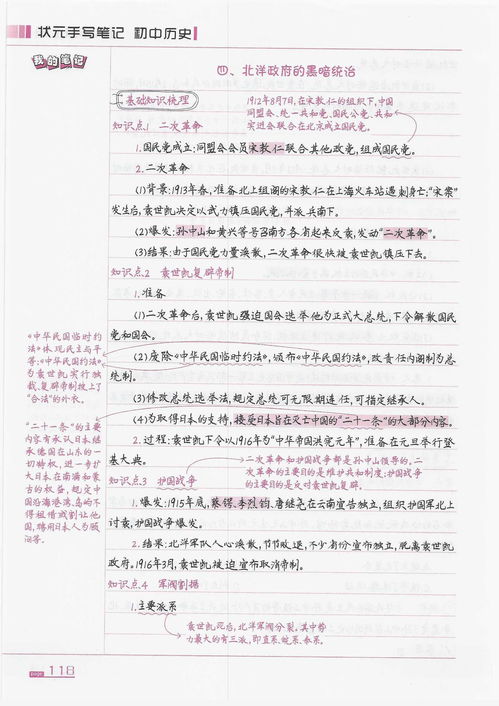 状元手写笔记 初中历史
我的笔记
四、北洋政府的黑暗统治
基础知识梳理
1912年8月7日,在宋教仁的组织下,中国
同盟会、统一共和党、国民公党、共和
实进会联合在北京成立国民党。
知识点1 二次革命
1.国民党成立:同盟会会员宋教仁联合其他政党,组成国民党。
2.二次革命
(1)背景:1913年春,准备北上组阁的宋教仁在上海火车站遇刺身亡:“宋案”
发生后,袁世凯决定以武力镇压国民党,并派兵南下。
(2)爆发:孙中山和黄兴等号召南方各省起来反袁,发动“二次革命”。
(3)结果:由于国民党力量涣散,二次革命很快被袁世凯镇压下去。
知识点2 袁世凯复辟帝制
1.准备
(1)二次革命后,袁世凯强迫国会选举他为正式大总统,下令解散国民
党和国会。
(2)废除《中华民国临时约法》,颁布《中华民国约法》,改责任内阁制为总
统制。
(3)修改总统选举法,规定总统可无限期连任,可指定继承人。
(4)为取得日本的支持,接受日本旨在灭亡中国的“二十一条”的大部分内容。
2.过程:袁世凯下令以1916年为“中华帝国洪宪元年”,准备在元旦举行登
基大典。
二次革命和护国战争都是孙中山领导的。二
次革命的主要目的是维护共和制度;护国战争
的主要目的是反对袁世凯复辟。
知识点3 护国战争
1.爆发:1915年底,蔡锷、李烈钧、唐继尧在云南宣告独立,组织护国军北上
讨袁,护国战争爆发。
2.结果:北洋军队人心涣散,节节败退,不少省份宣布独立,脱离袁世凯
政府。1916年3月,袁世凯被迫宣布取消帝制。
知识点4 军阀割据
1.主要派系
袁世凯死后,北洋军阀分裂。其中势
力最大的有三派,即直系、皖系、奉系。
《中华民国临时约
法》体现民主与平
等;《中华民国约法》
为袁世凯实行独
裁、复辟帝制披上了
“合法”的外衣。
“二十一条”的主要
内容有承认日本继
承德国在山东的一
切特权,进一步扩
大日本在南满和蒙
古的权益,规定中
国沿海港湾、岛屿不
得租借或割让他
国,聘用日本人为顾
问等。
page 118